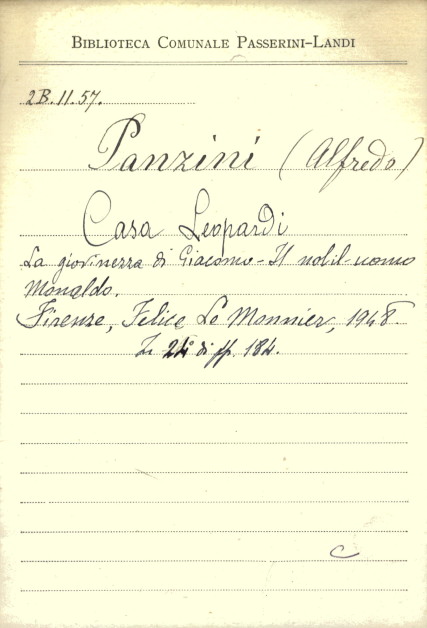 BIBLIOTECA COMUNALE PASSERINI-LANDI
2B.11.57.
Panzini (Alfredo)
Casa Leopardi
La giovinezza di Giacomo - Il nobil-uomo
Monaldo.
Firenze, Felice Le Monnier, 1948.
In 24° di pp. 184.
C